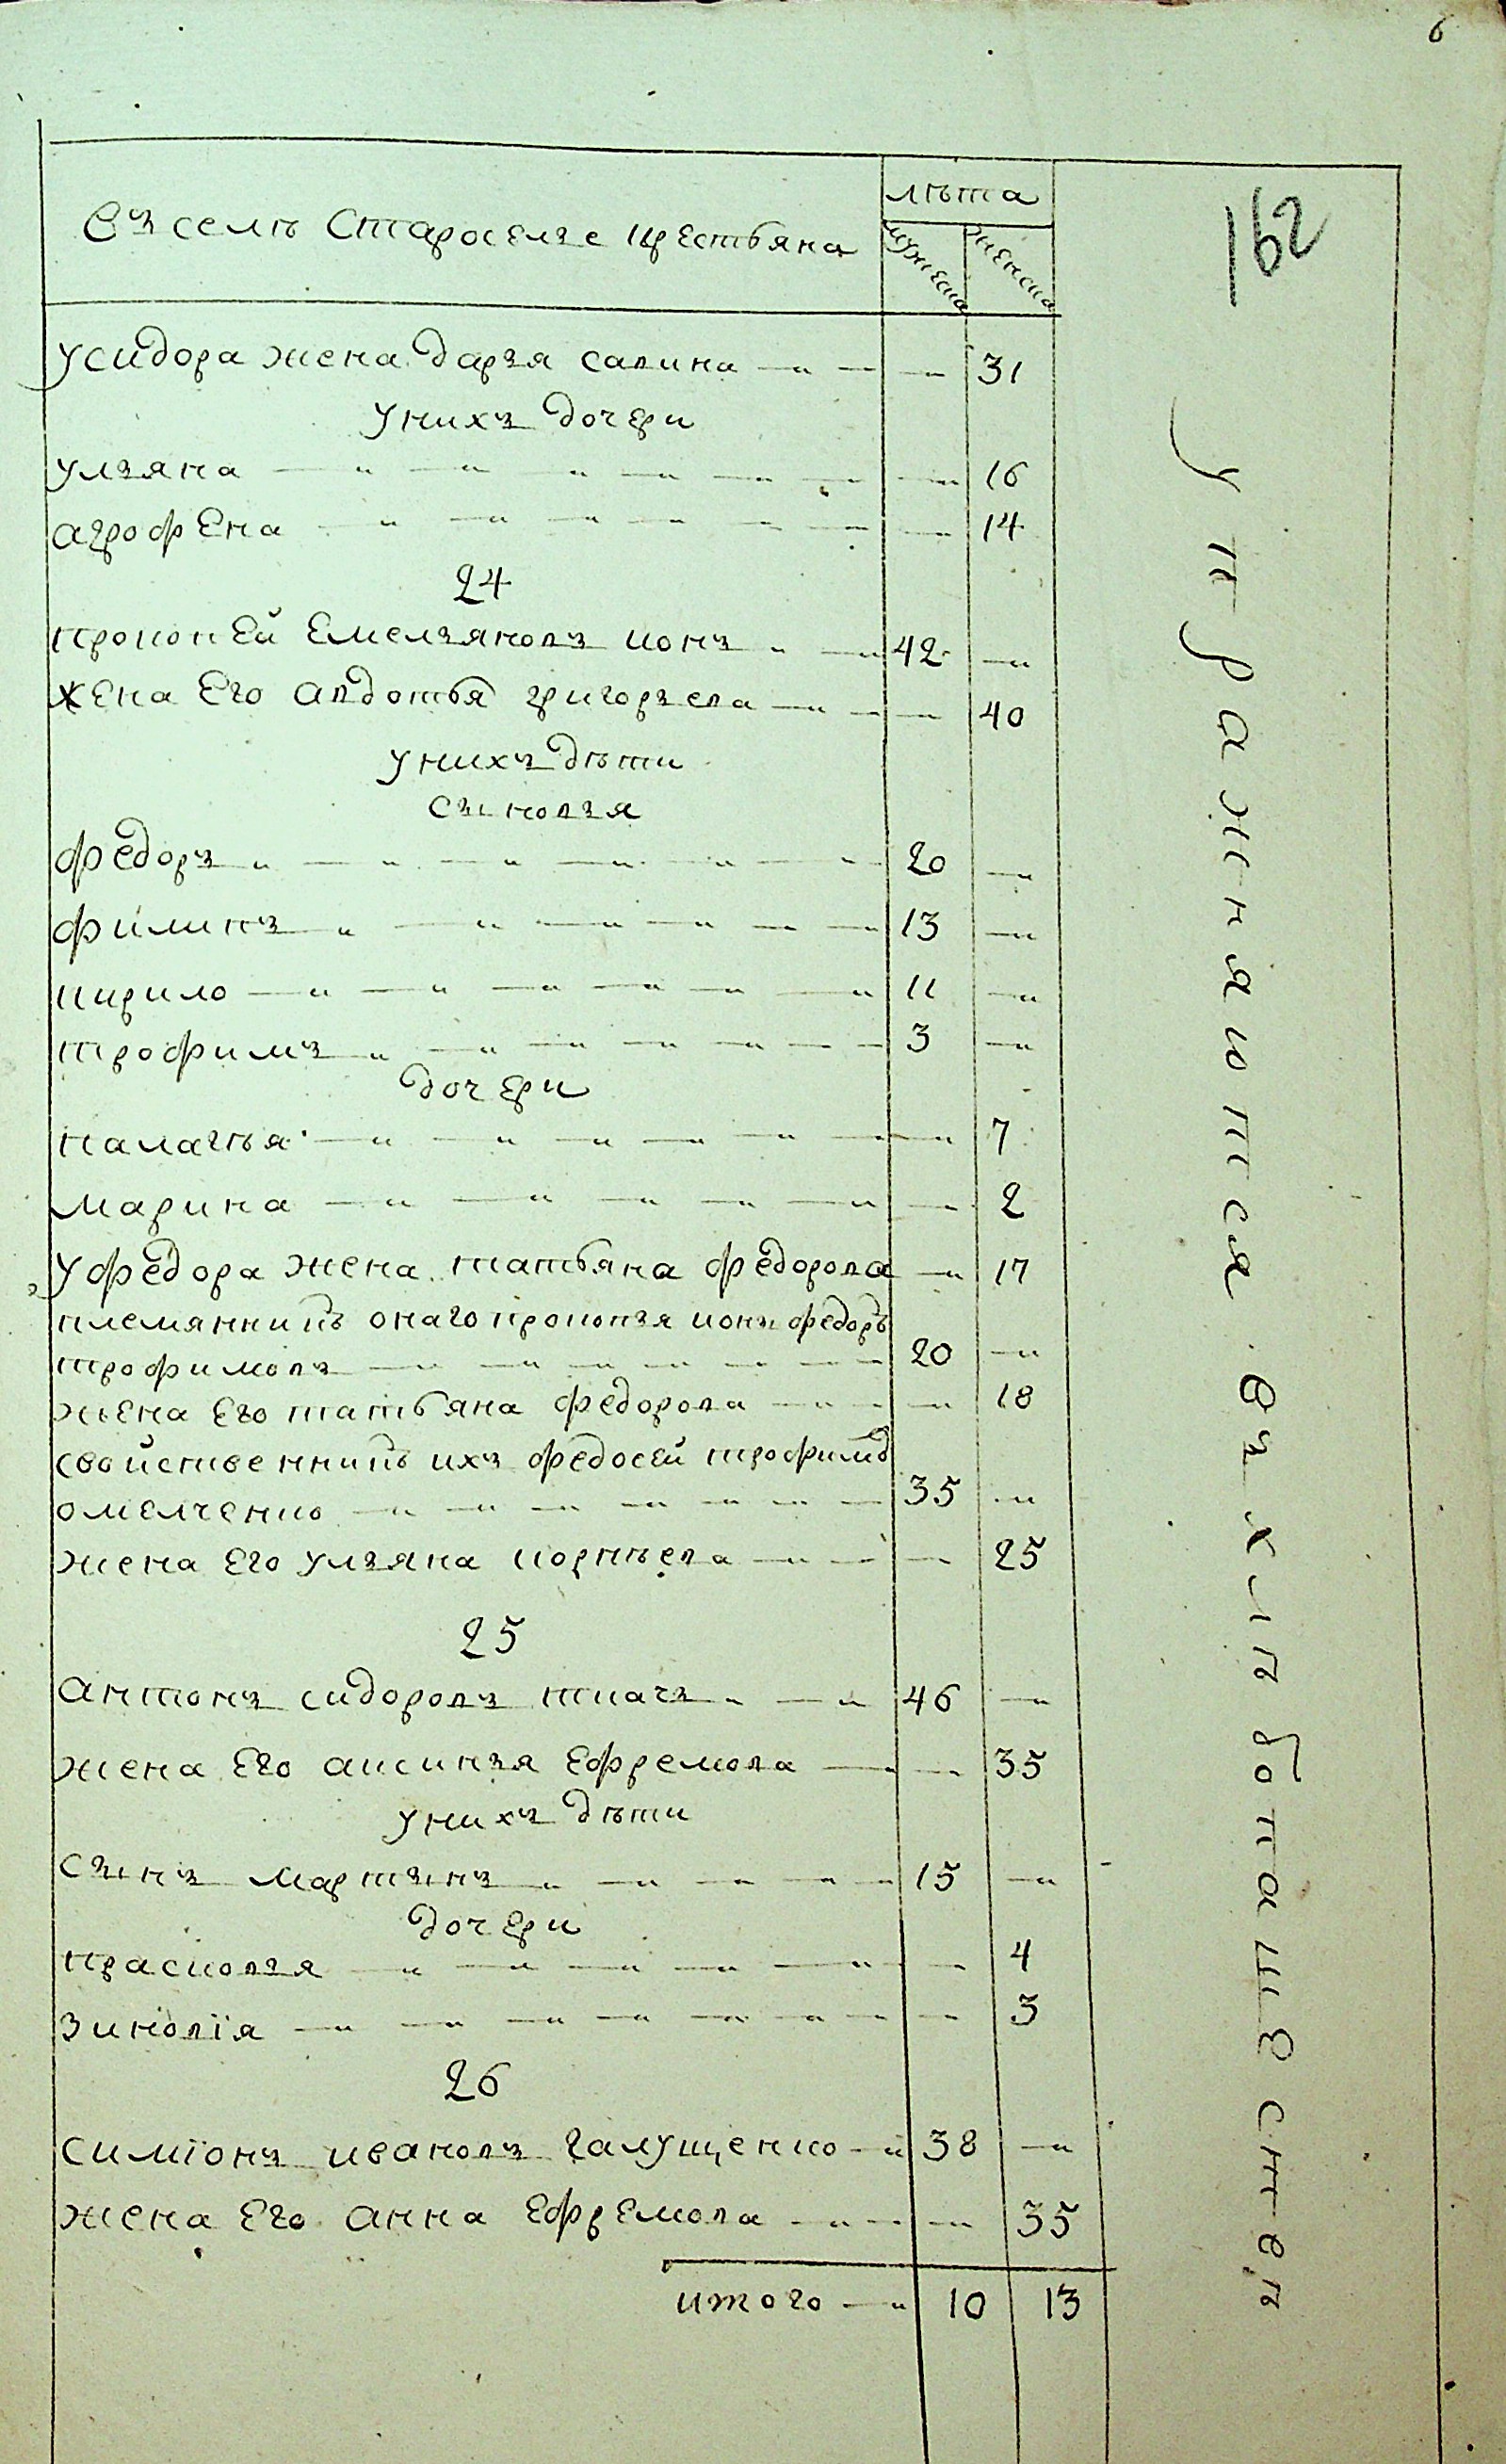 6
162
Въ селѣ Староселье крестьяна
лѣта
мужеска
женска
у сидора жена дарья савина 31
у нихъ дочери
ульяна 16
агрофена 14
24
прокопей емельяновъ конъ 42
жена его авдотья григорьева 40
у нихъ дѣти
сыновья
федоръ 20
филипъ 13
кирило 11
трофимъ 3
дочери
палагѣя 7
марина 2
у федора жена татьяна федорова 17
племянникъ онаго прокопья кона федоръ
трофимовъ 20
жена его татьяна федорова 18
свойственникъ ихъ федосей трофимовъ
омелченко 35
жена его ульяна корнѣева 25
25
антонъ сидоровъ ткачъ 46
жена его аксинья ефремова 35
у нихъ дѣти
сынъ мартынъ 15
дочери
прасковья 4
зиновїя 3
26
симїонъ ивановъ галущенко 38
жена его анна ефремова 35
итого 10 13
упражняются въ хлибопатзственъ